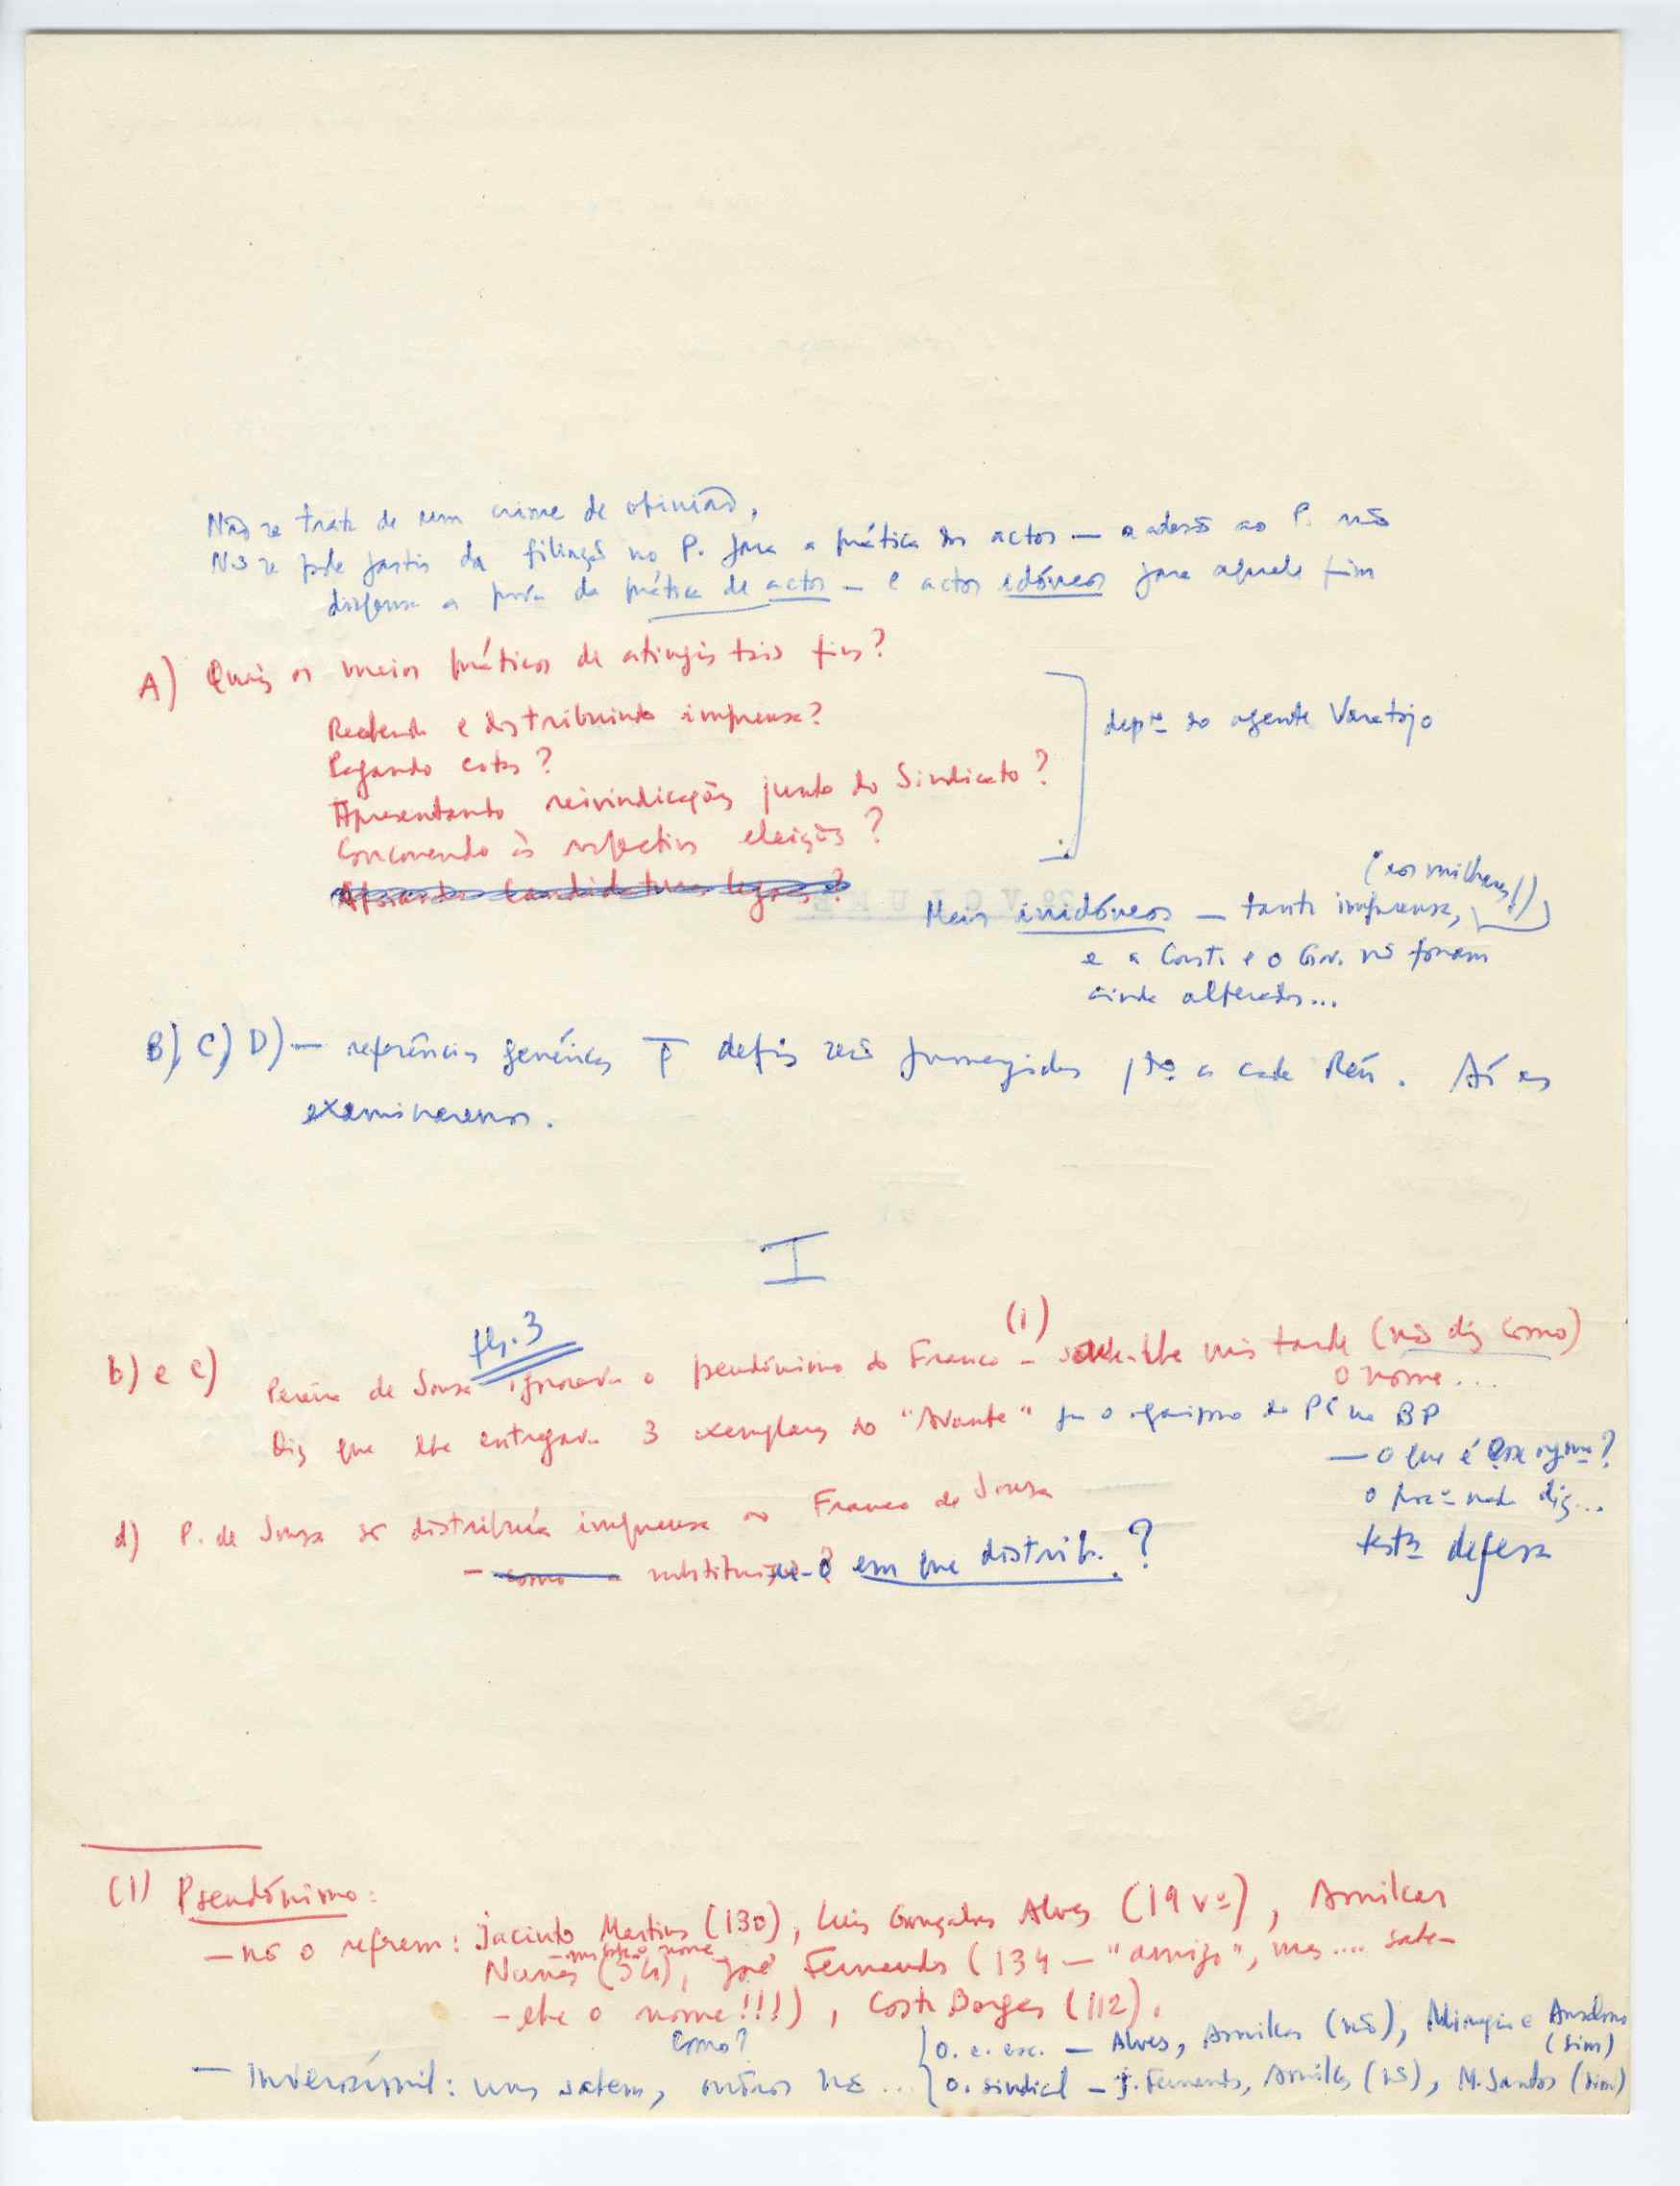 Não se trata de um crime de opinião,
Não se pode partir da filiação no P. para a prática dos actos — a adesão ao P. não
dispensa a prova da prática de actos — e actos idóneos para aquele fim
A) Quais os meios práticos de atingir tais fins?
Recebendo e distribuindo imprensa?
Pagando cotas?
Apresentando reivindicações junto do Sindicato?
Concorrendo às respectivas eleições?
depto do agente Varatojo
Apoiando candidaturas legais?
(aos milhares!)
Meios inidóneos — tanta imprensa,
e a Const. e o Gov. não foram
ainda alterados...
B), C), D) — referências genéricas q̄ depois serão 1do a cada Réu. Aí as
examinaremos.
I
fls. 3
(1)
b) e c) Pereira de Sousa ignorava o pseudónimo do Franco — soube-lhe mais tarde (não diz como)
o nome...
Diz que lhe entregava 3 exemplares do "Avante" o organismo do PC no BP
— O que é esse orgmo?
o proco nada diz...
testa defesa
d) P. de Sousa só distribuía imprensa ao Franco de Sousa
— como a substituiu-o em que distrib.?
(1) Pseudónimo:
— não o referem: Jacinto Martins (130), Luís Gonçalves Alves (19 vº), Amilcar
nome
Nunes (54), José Fernandes (134 — "amigo", mas.... sabe-
-lhe o nome!!!), Costa Borges (112).
Como?
— Inverosímil: uns sabem, outros não... { o. e. esc. — Alves, Amilcar (não), e Anselmo
(sim)
o. sindical — J. Fernandes, Amilcar (não), M. Santos (sim)